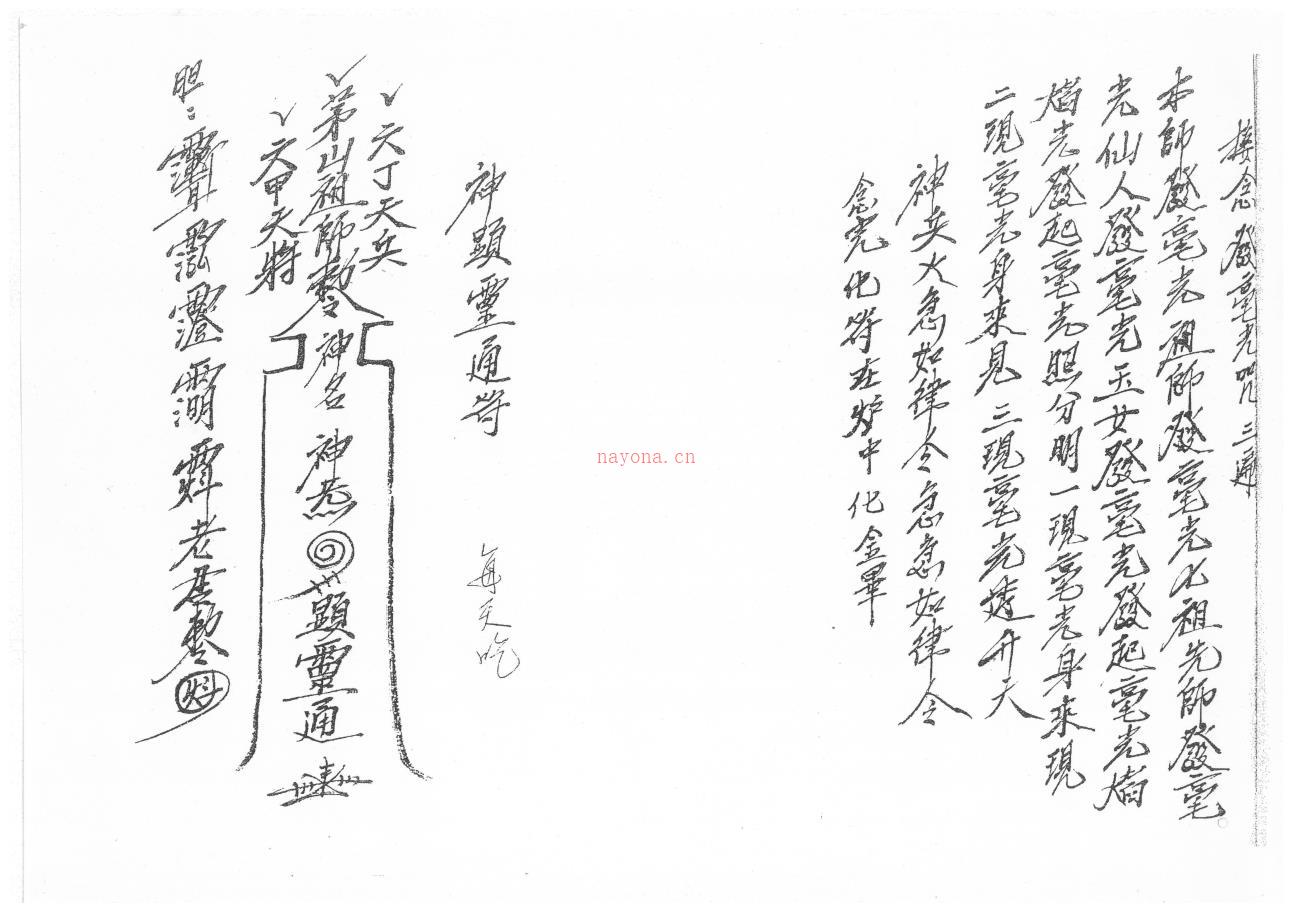 接念發毫光咒三遍
本師發毫光祖師發毫光七祖先師發毫
光仙人發毫光玉女發毫光發起毫光
光發起毫光照分明一現毫光身來現
二現毫光身來見三現毫光透開天
神兵火急如律令急急如律令
念完化符在炉中化金畢
神顯靈通符
每天吃
六丁天兵
茅山祖師敕令
六甲天將
神名
神炁
顯靈通
胆:
老君敕令
nayona.cn